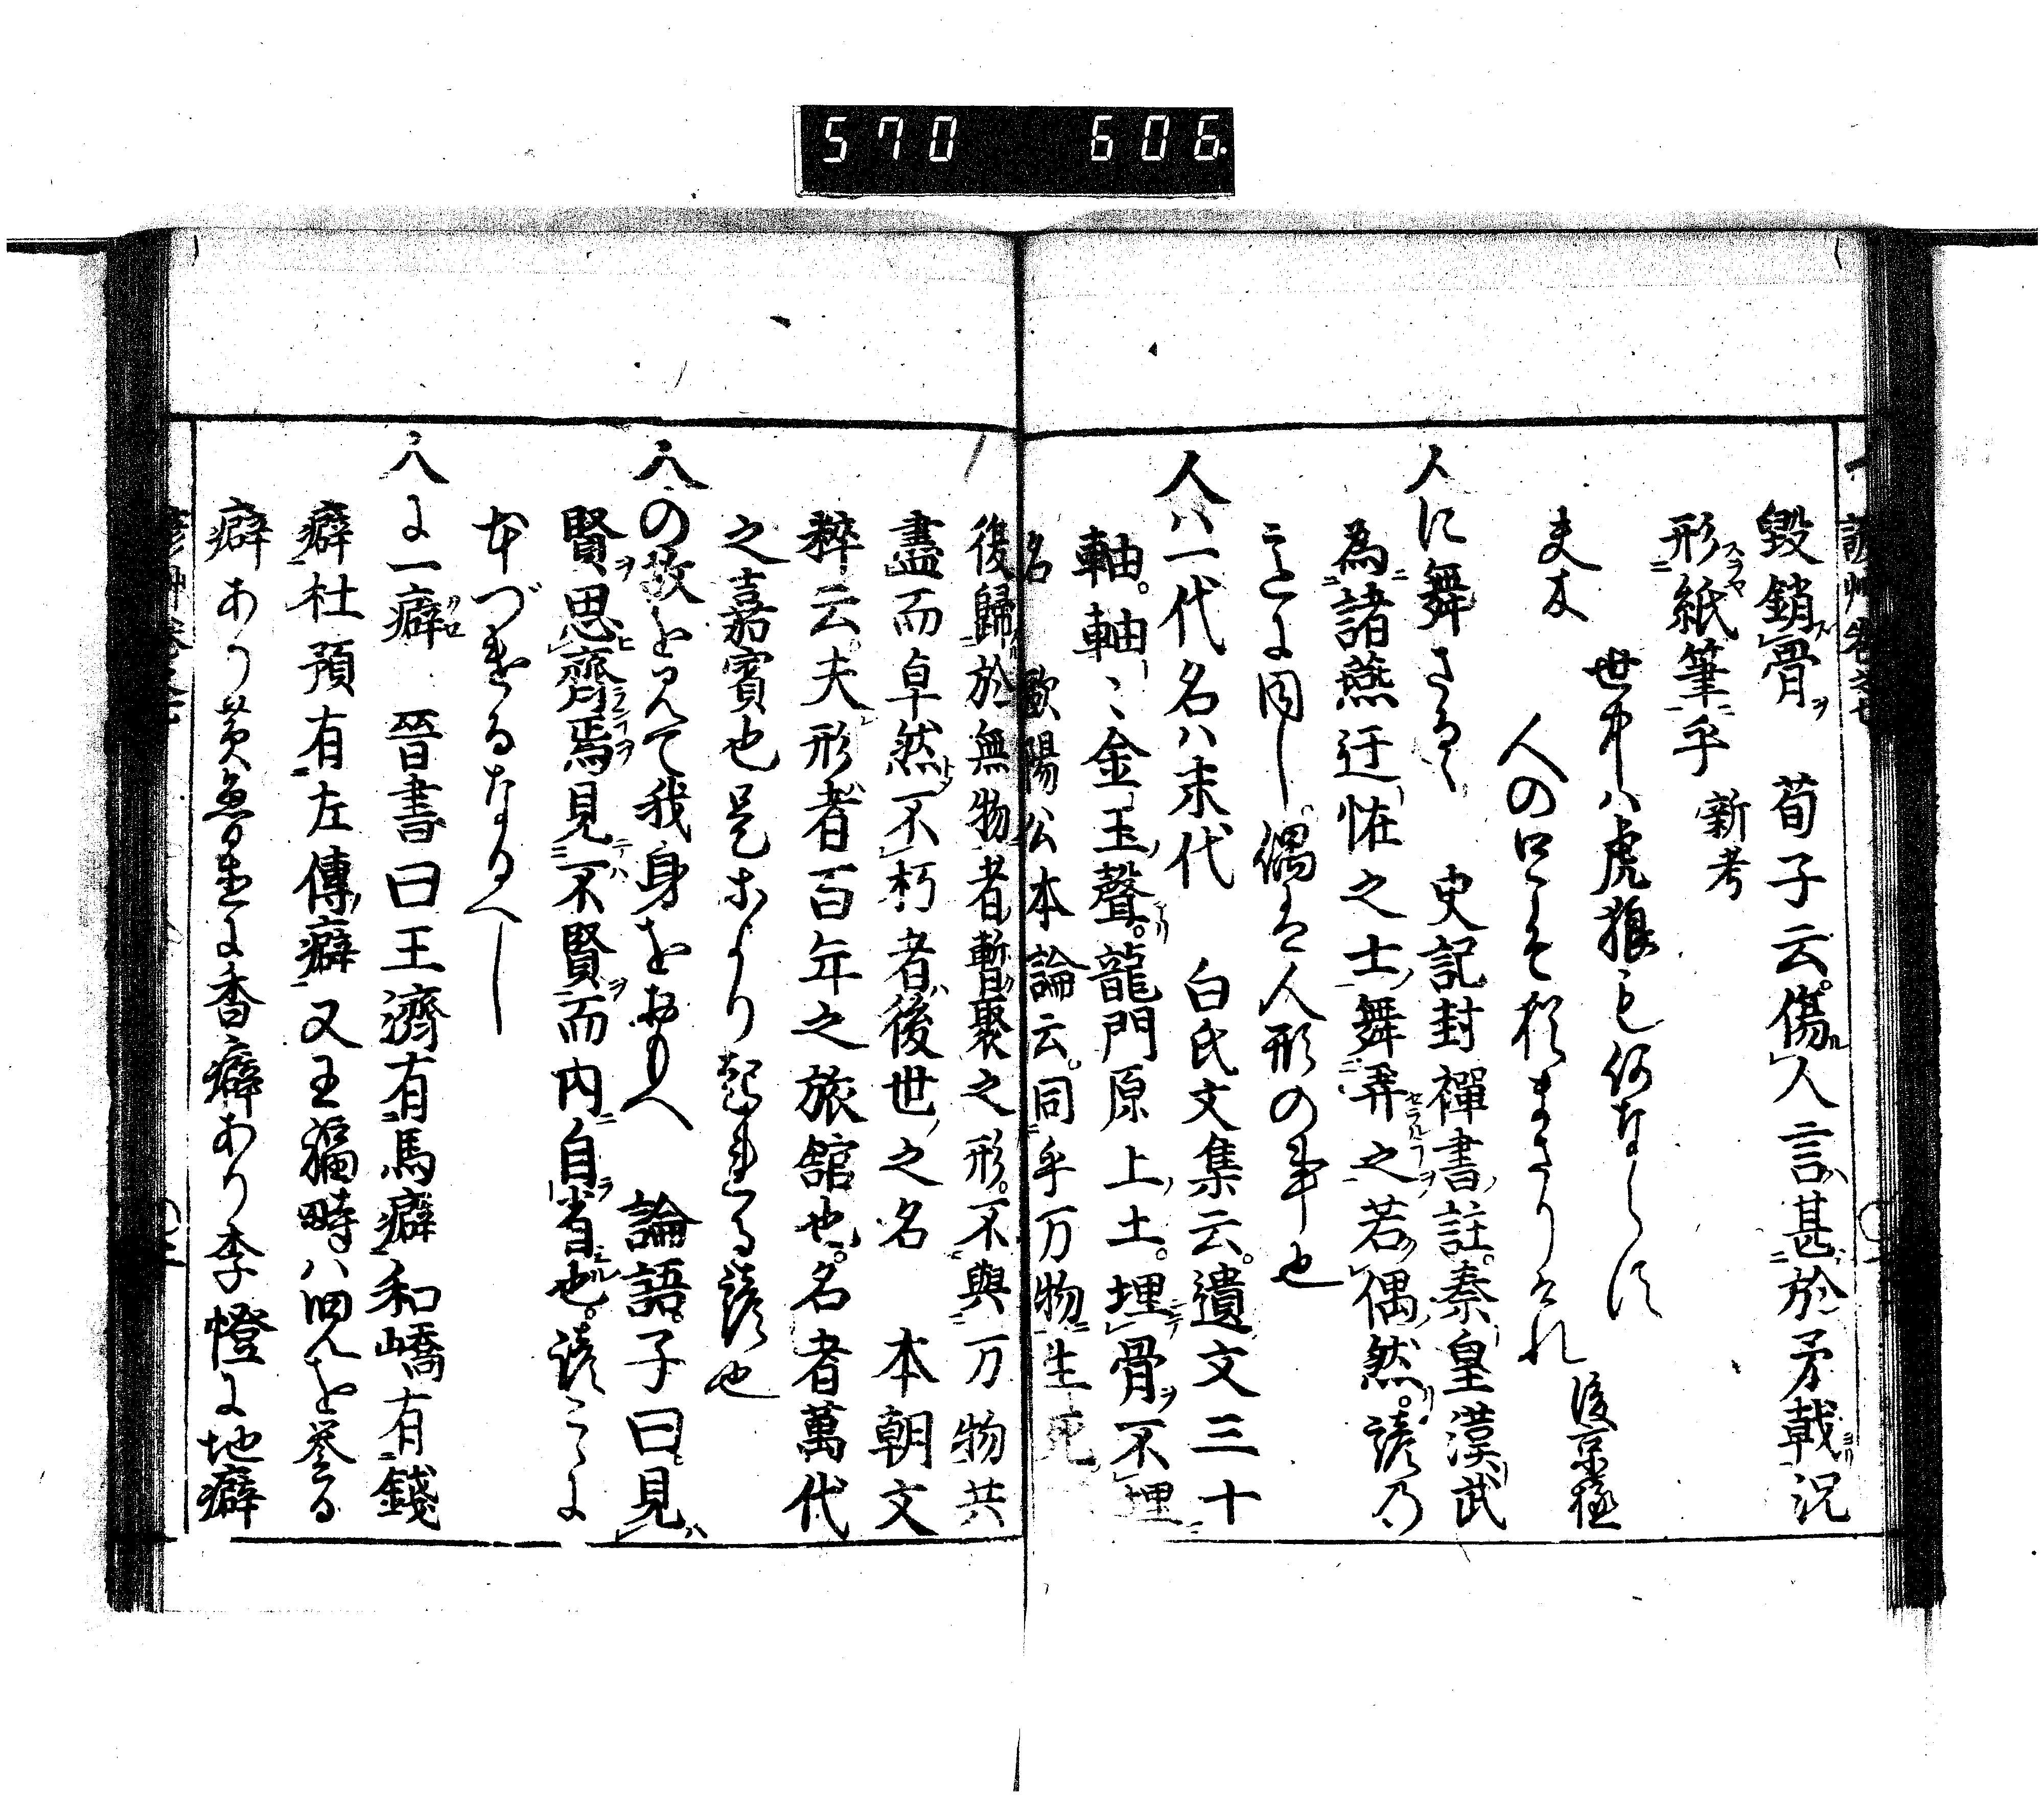 570 606
毀鎖骨ヲ 荀子云。傷人言甚於矛戟況
形紙筆乎 新考
世中ハ虎狼も何ならす
夫木 人の口こそ猶まさりけれ 後京極
人に舞さるゝ 史記封禪書註。秦皇漢武
為諸燕迂怪之士舞弄之若偶然。諺乃
こゝに同し。偶は人形の事也
人ハ一代名ハ末代 白氏文集云。遺文三十
軸。軸〻金玉聲。龍門原上土。埋骨ヲ不埋
名 歐陽公本論云。同乎万物生死
復歸於無物者暫聚之形。不與万物共
盡而卓然不朽者後世之名 本朝文
粹云。夫形者百年之旅舘也。名者萬代
之嘉賓也是等より起れる諺也
人の故を見て我身をおもへ 論語。子曰。見
賢ヲ思齊焉見不賢ヲ而内自省也。諺こゝに
本づけるなるへし
人に一癖 晉書曰王濟有馬癖和嶠有錢
癖杜預有左傳癖又王福畤ハ四児を誉る
癖あり黄魯直に香癖あり李憕に地癖